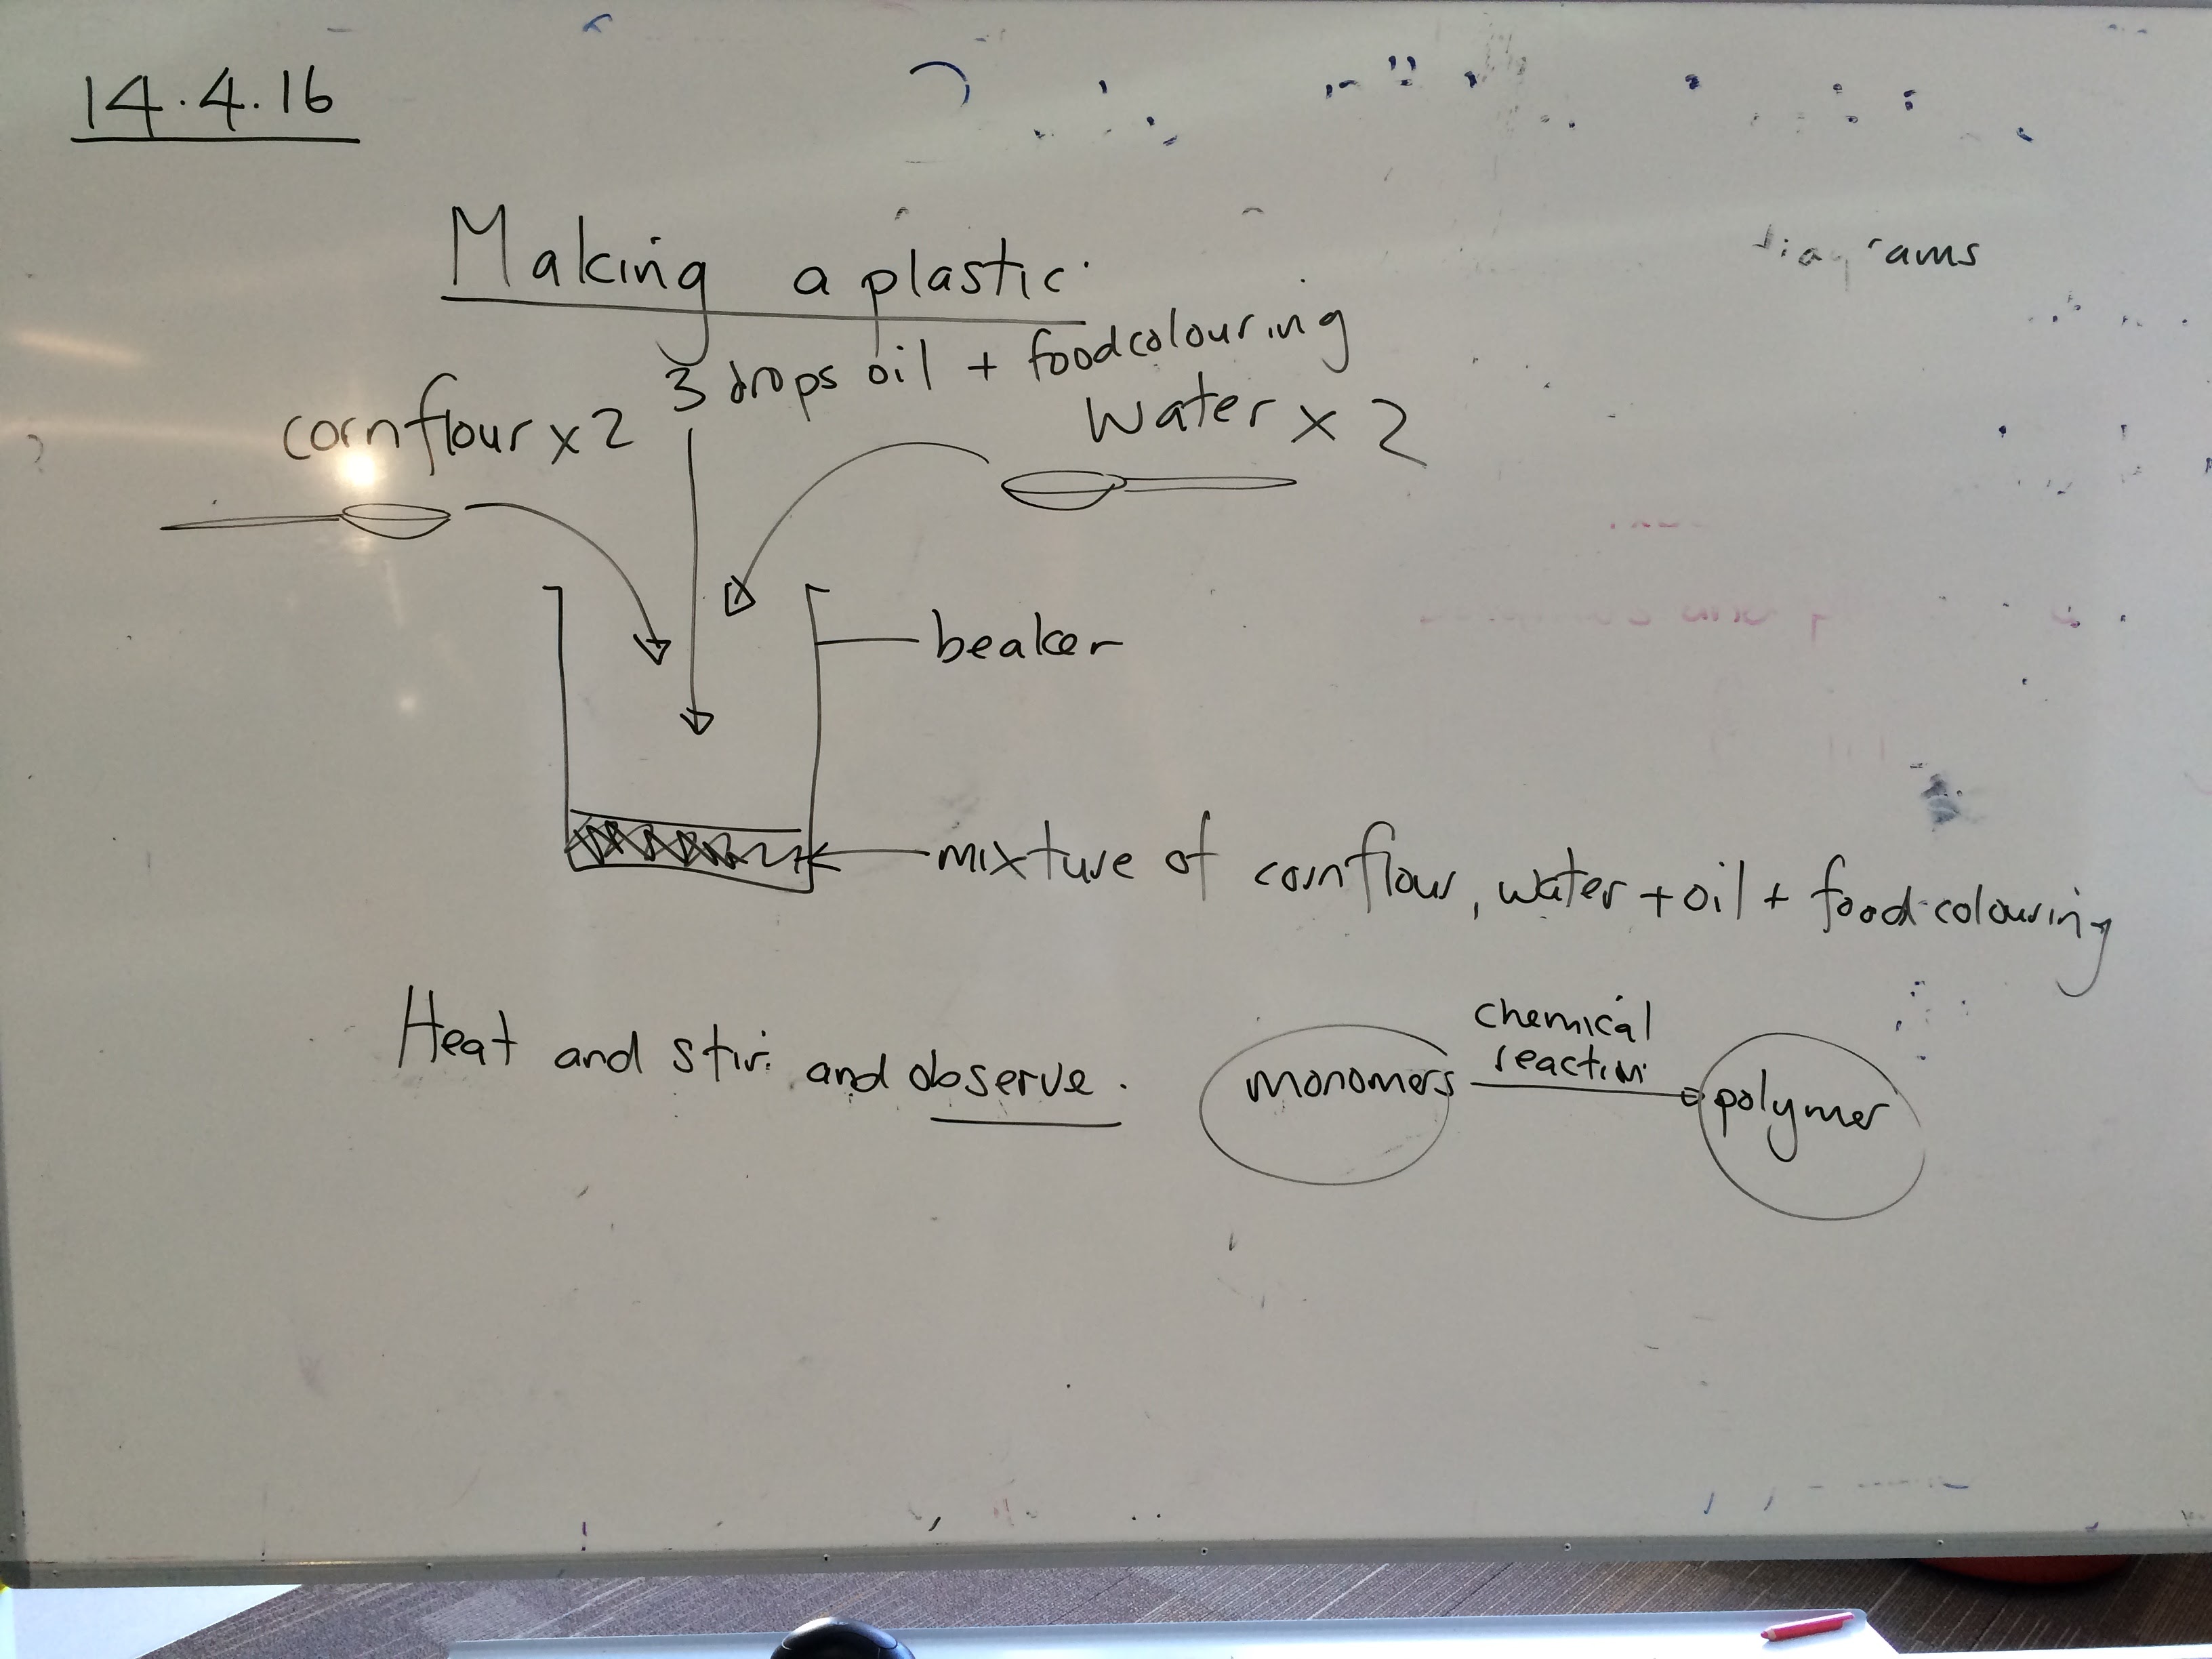 14.4.16
Making a plastic.
3 drops oil + foodcolouring
cornflour x 2
water x 2
beaker
mixture of cornflour, water + oil + food colouring
Heat and stir. and observe.
chemical
reaction
monomers
polymer